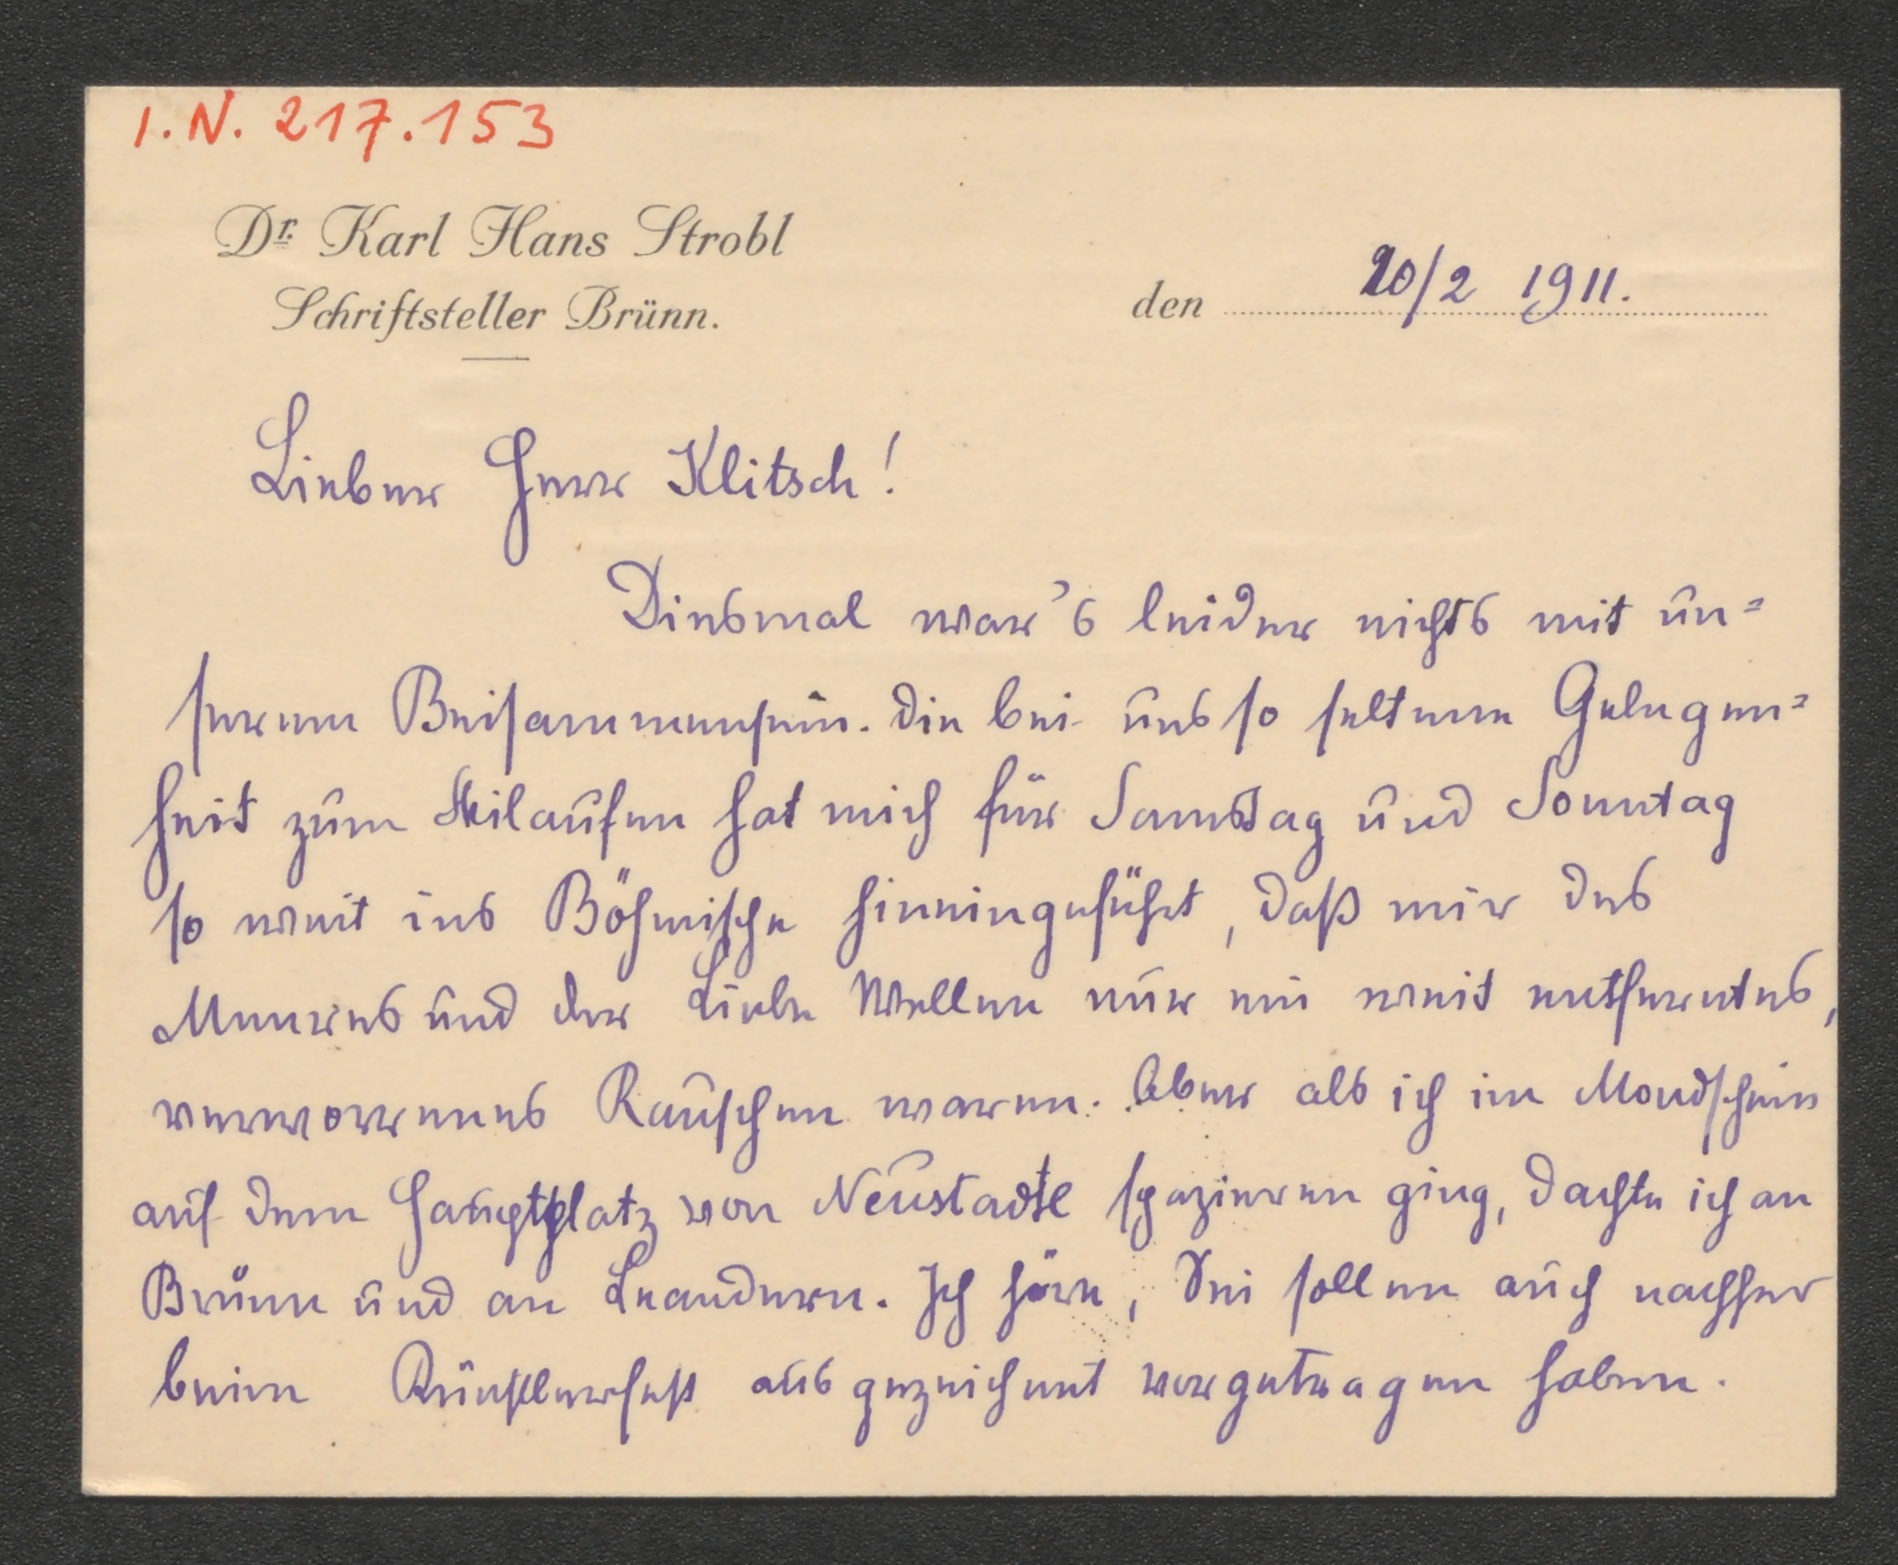 I.N. 217.153
Dr. Karl Hans Strobl
Schriftsteller Brünn.
den 20/2 1911.
Lieber Herr Klitsch!
Diesmal war's leider nichts mit un=
serem Beisammensein. Die bei uns so seltene Gelegen=
heit zum Skilaufen hat mich für Samstag und Sonntag
so weit ins Böhmische hineingeführt, daß mir des
Meeres und der Liebe Wellen nur ein weit entferntes,
verworrenes Rauschen waren. Aber als ich im Mondschein
auf dem Hauptplatz von Neustadtl spazieren ging, dachte ich an
Brünn und an Leandern. Ich höre, Sie sollen auch nachher
beim Künstlerfest ausgezeichnet vorgetragen haben.